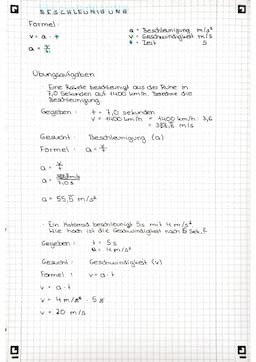 BESCHLEUNIGUNG
Formel:
v = a · t
a = v/t
a = Beschleunigung m/s²
v = Geschwindigkeit m/s
t = Zeit s
Übungsaufgaben
Eine Rakete beschleunigt aus der Ruhe in
7,0 Sekunden auf 1400 km/h. Berechne die
Beschleunigung.
Gegeben: t = 7,0 sekunden
v = 1400 km/h = 1400 km/h : 3,6
= 388,8 m/s
Gesucht: Beschleunigung (a)
Formel: a = v/t
a = v/t
a = 388,8 m/s / 7,0 s
a = 55,5 m/s²
Ein Motorrad beschleunigt 5s mit 4 m/s².
Wie hoch ist die Geschwindigkeit nach 5 Sek.?
Gegeben: t = 5s
a = 4 m/s²
Gesucht: Geschwindigkeit (v)
Formel: v = a · t
v = a · t
v = 4 m/s² · 5 s
v = 20 m/s